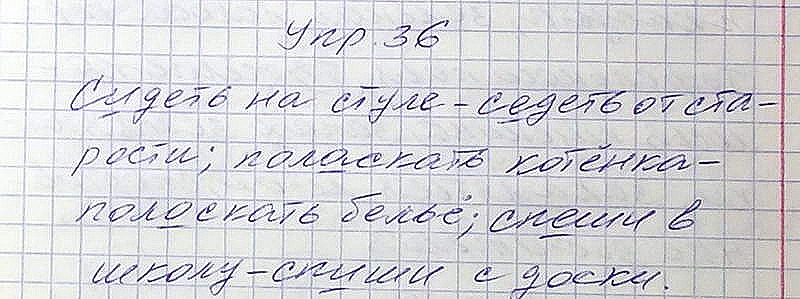 Упр. 36
Сидеть на стуле - седеть от ста-
рости; поласкать котёнка-
полоскать бельё; спеши в
школу - спиши с доски.